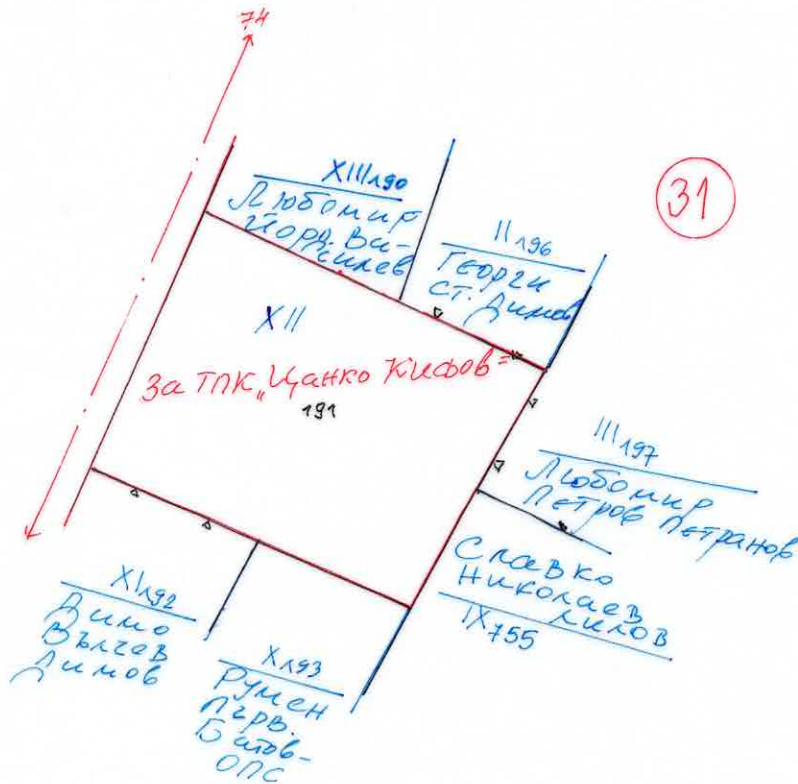 74
31
XIII 190
Любомир
Йорд. Ва-
силев
II 196
Георги
Ст. Димов
XII
За ТПК „Цанко Кифов"
191
III 197
Любомир
Петров Петранов
Славко
Николаев
Лилов
IX 755
XI 192
Димо
Вълчев
Димов
X 193
Румен
Първ.
Батов-
ОПС